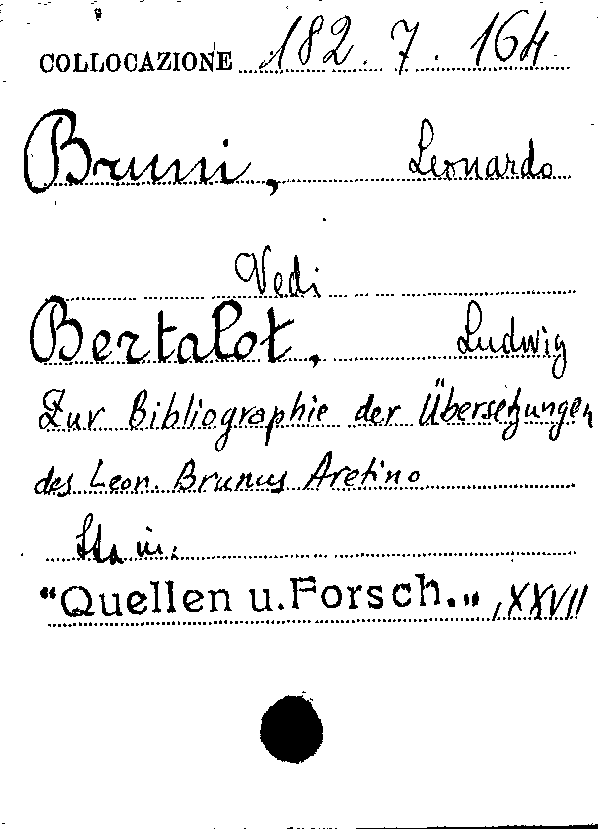 COLLOCAZIONE 182.7.164
Bruni, Leonardo
Vedi
Bertalot, Ludwig
Zur Bibliographie der Übersetzungen
des Leon. Brunus Aretino
Sta in:
"Quellen u. Forsch.", XXVII